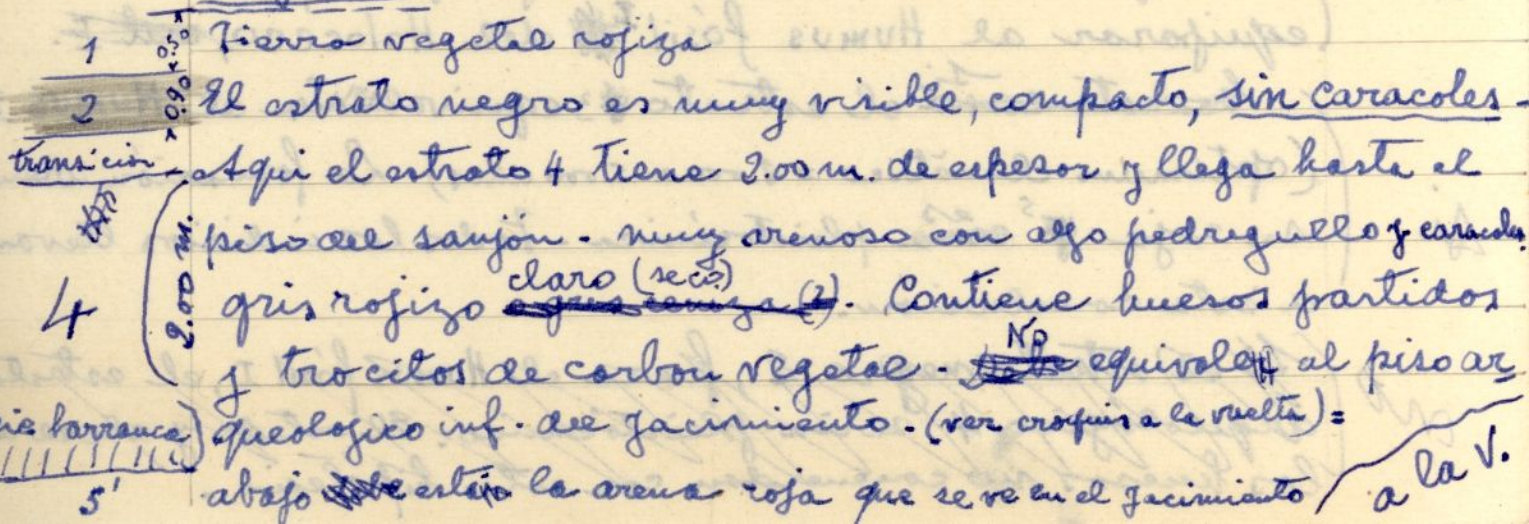 1 0.50 Tierra vegetal rojiza
2 0.90 El estrato negro es muy visible, compacto, sin caracoles -
transición - Aqui el estrato 4 tiene 2.00 m. de espesor y llega hasta el
piso del sanjón - muy arenoso con algo pedregullo y caracoles
4 2.00 m. gris rojizo claro (seco). Contiene huesos partidos
y trocitos de carbon vegetal - No equivale al piso ar
pie barranca) queologico inf. del Jacimiento - (ver croquis a la vuelta) =
5' abajo está la arena roja que se ve en el Jacimiento / a la V.